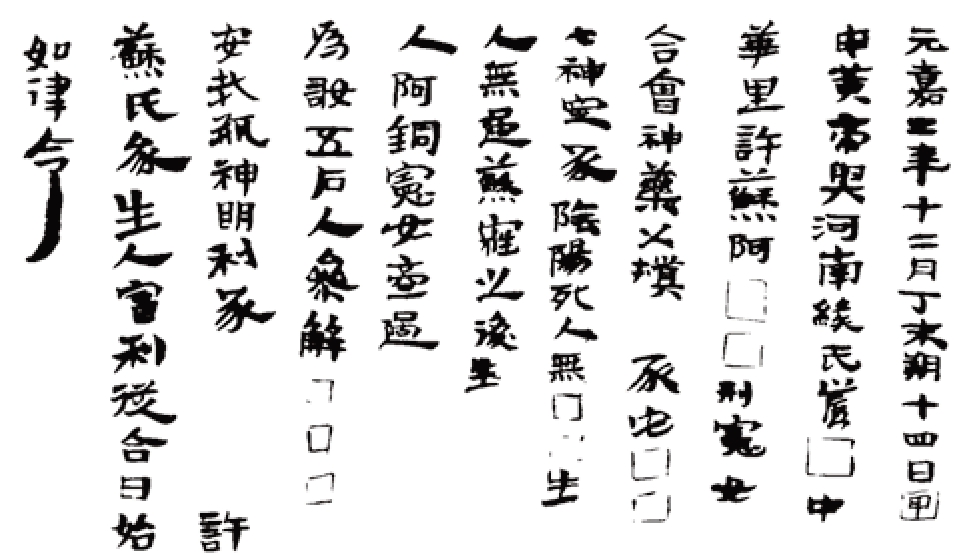 元嘉二年十二月丁未朔十四日甲
申黃帝與河南緱氏□中
華里許蘇阿□□刑憲女
合會神藥以填 冢宅□□
七神定冢陰陽死人無□生
人無過蘇寧以後生
人阿銅憲女適過
為敬五石人參解□□□
安冢神明利冢 許
蘇氏家生人富利從合日始
如律令